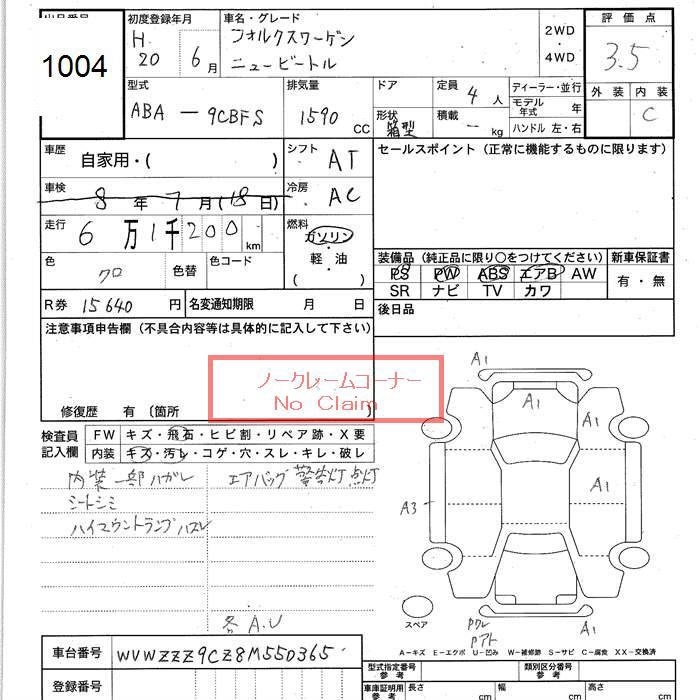 出品番号
1004
初度登録年月 車名・グレード 評価点
H 20 6月 フォルクスワーゲン ニュービートル 2WD・4WD 3.5
型式 排気量 ドア 定員 ディーラー・並行 外装 内装
ABA-9CBFS 1590 CC 形状 箱型 4人 積載 - kg モデル年式 年 C
ハンドル 左・右
車歴 自家用・( ) シフト AT セールスポイント(正常に機能するものに限ります)
車検 8年7月(18日) 冷房 AC
走行 6万1千200km 燃料 ガソリン・軽・油 ( )
装備品(純正品に限り○をつけてください) 新車保証書
色 クロ 色替 色コード
PS PW ABS エアB AW 有・無
SR ナビ TV カワ
R券 15640円 名変通知期限 月 日 後日品
注意事項申告欄(不具合内容等は具体的に記入して下さい)
ノークレームコーナー
No Claim
修復歴 有(箇所
検査員記入欄 FW キズ・飛石・ヒビ割・リペア跡・X要
内装 キズ・汚レ・コゲ・穴・スレ・キレ・破レ
内装一部ハガレ エアバッグ警告灯点灯
シートシミ
ハイマウントランプハズレ
各A.U
A1
A1
A1
A1
A3
スペア
A1
A-キズ E-エクボ U-凹み W-補修跡 S-サビ C-腐食 XX-交換済
車台番号 WVWZZZ9CZ8M550365
型式指定番号 参考 類別区分番号 参考
登録番号
車庫証明用 参考 長さ cm 幅 cm 高さ cm